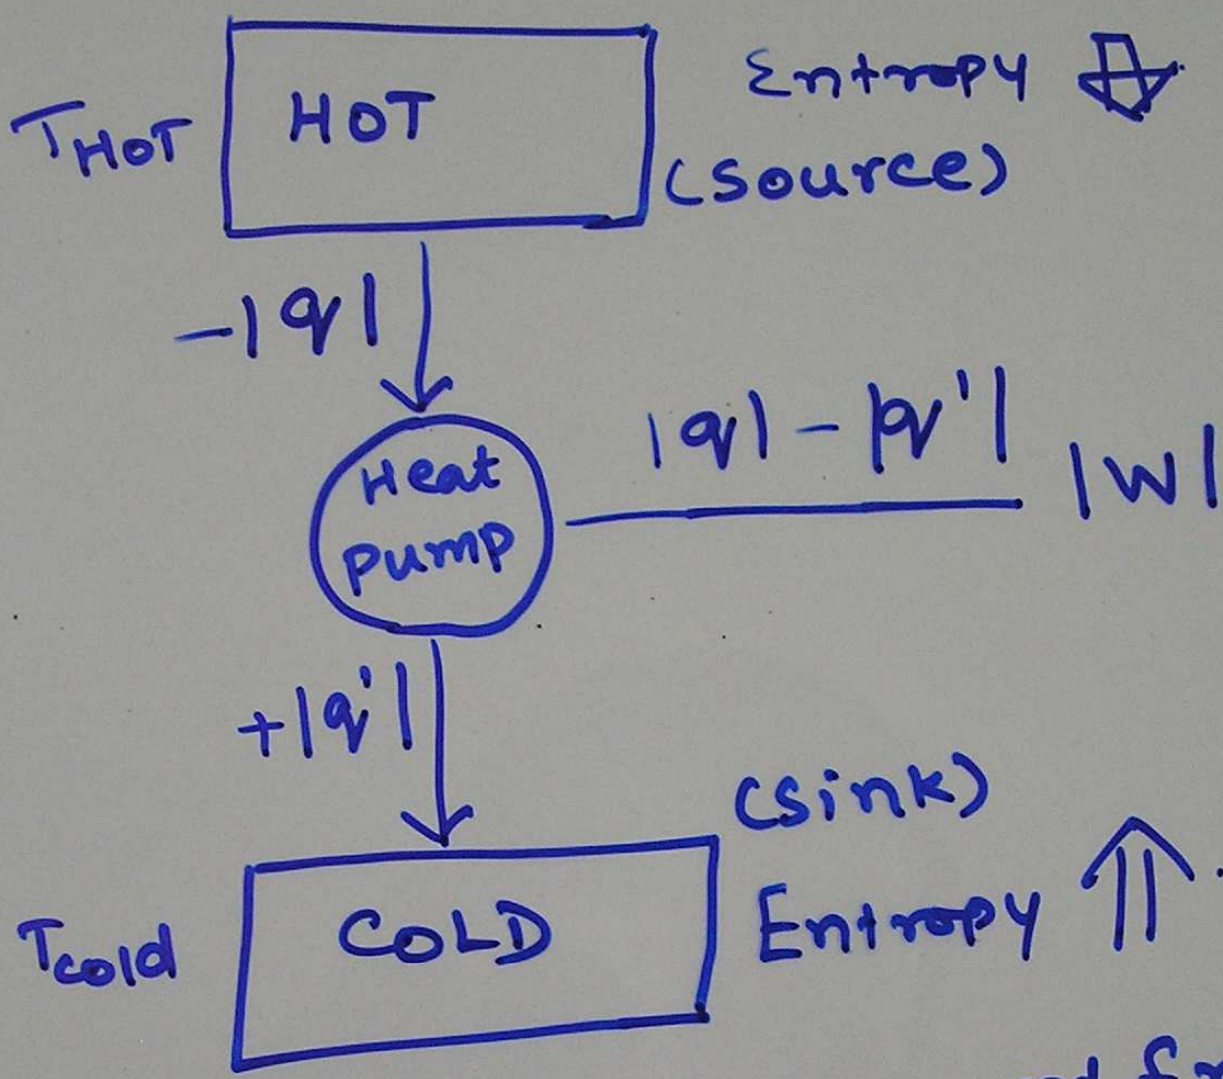 THOT
HOT
Entropy ⇓
(source)
-|q|
Heat
pump
|q| - |q'|
|w|
+|q'|
(sink)
Tcold
COLD
Entropy ⇑